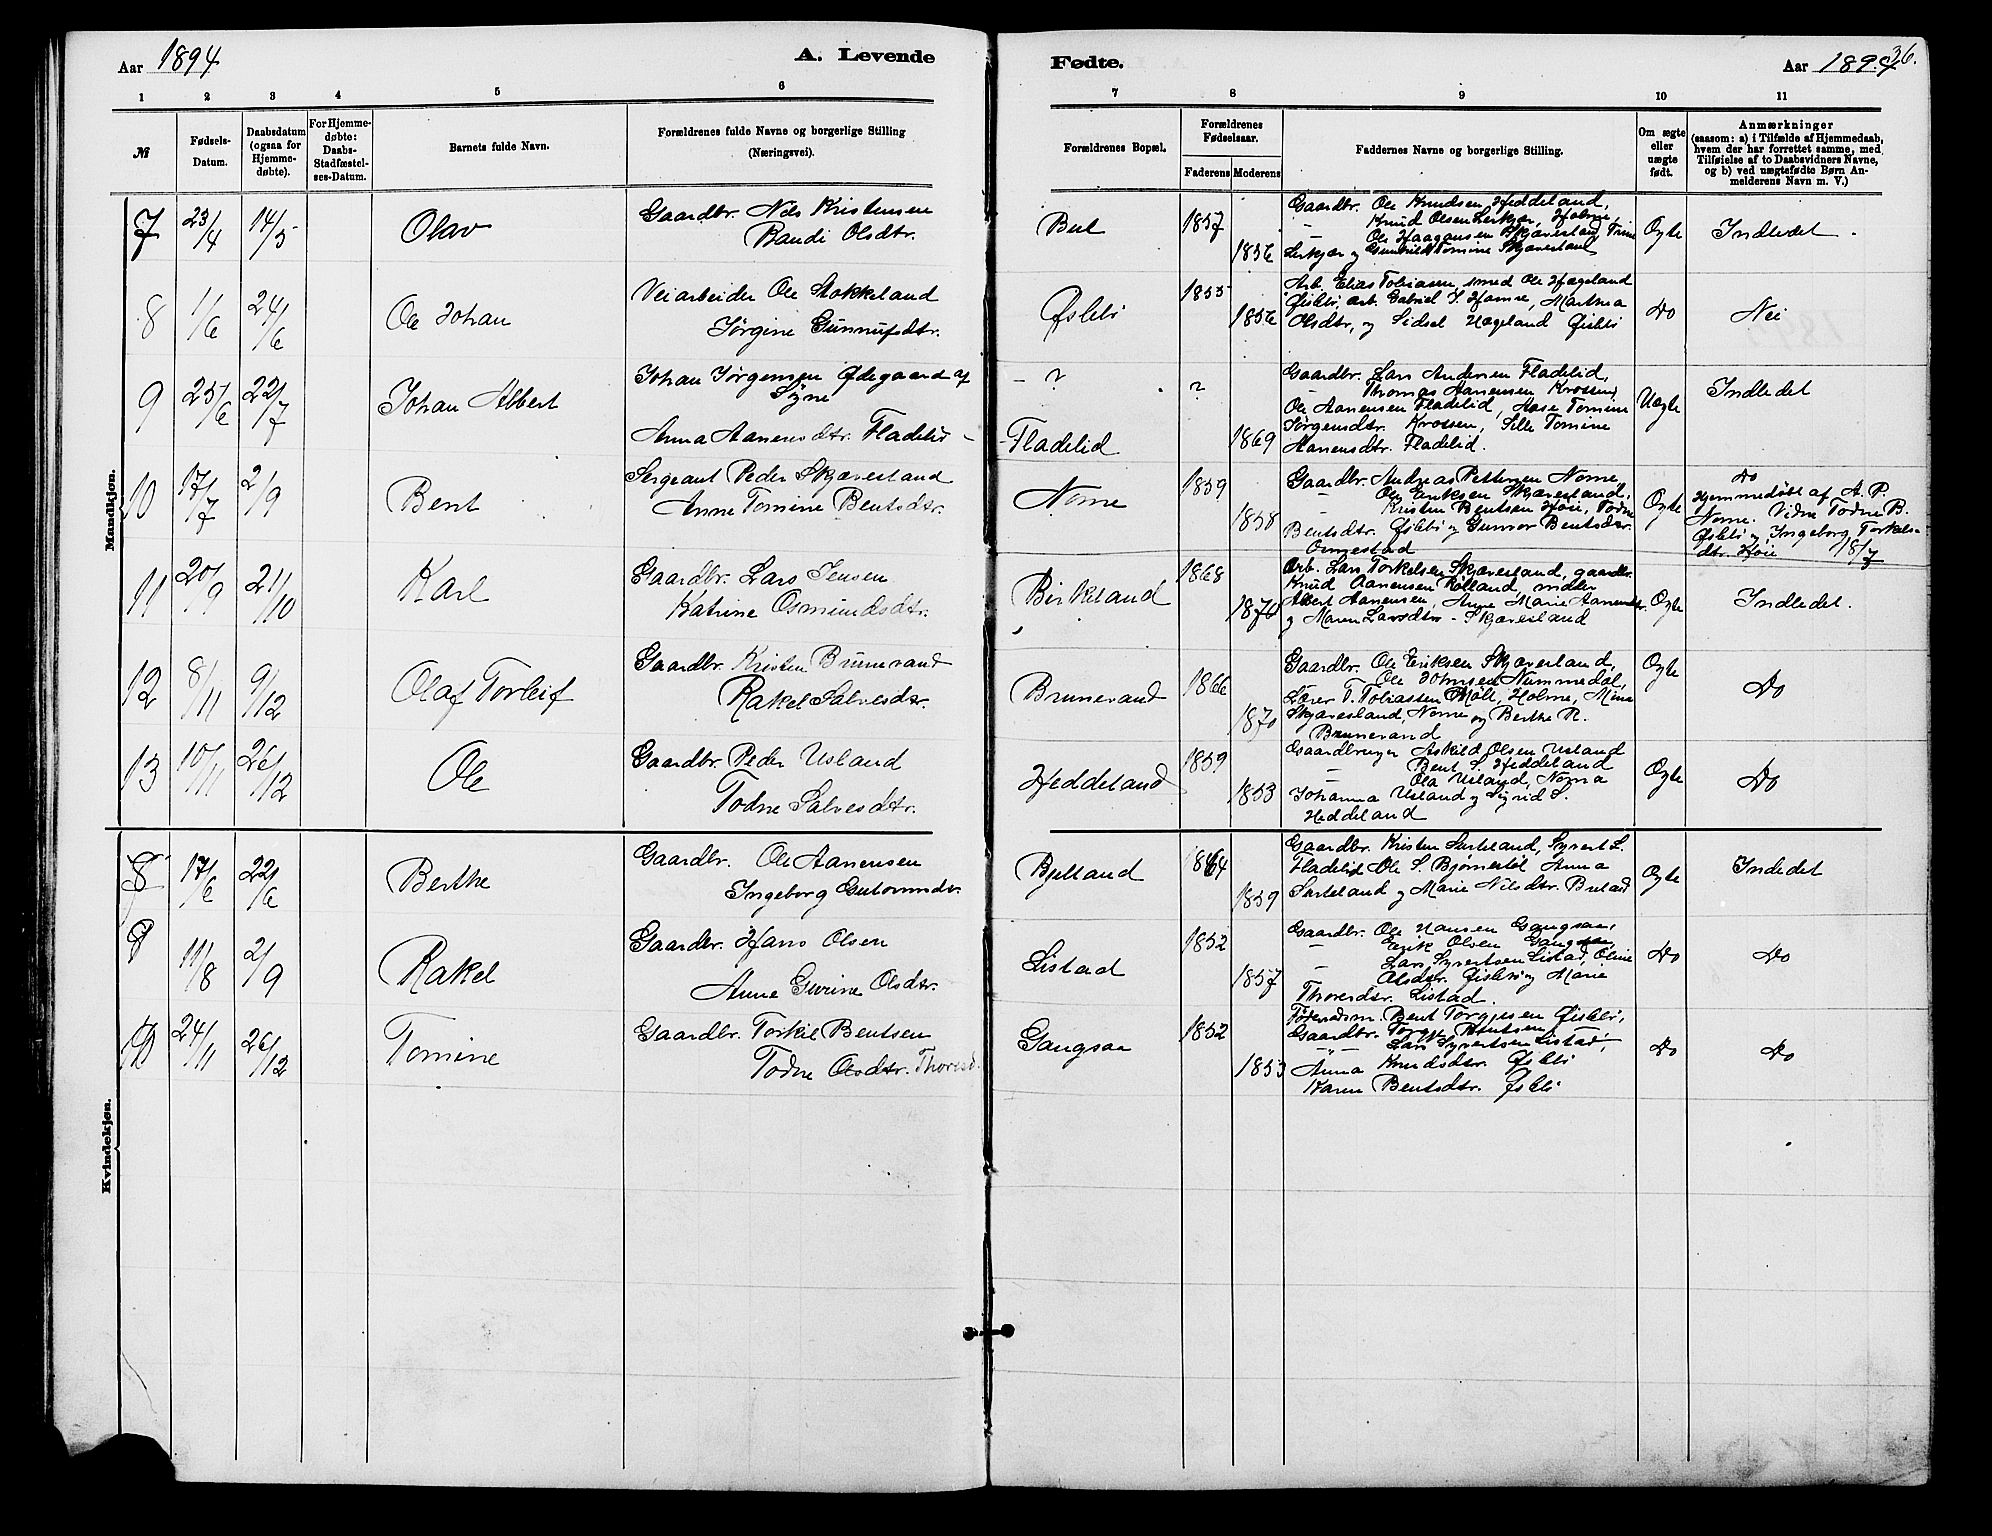 Aar 1894
A. Levende
1 2 3 4 5 6
№
Fødsels-
Datum.
Daabsdatum
(ogsaa for
Hjemme-
døbte).
For Hjemme-
døbte:
Daabs-
Stadfæstel-
ses-Datum.
Barnets fulde Navn.
Forældrenes fulde Navne og borgerlige Stilling
(Næringsvei).
Mandkjøn.
7 23/4 14/5 Olav
Gaardbr. Nils Kristensen
Randi Olsdtr.
8 1/6 24/6 Ole Johan
Veiarbeider Ole Stokkeland
Jørgine Gunnufsdtr.
9 25/6 22/7 Johan Albert
Johan Jørgensen Ødegaard af
Søgne
Anna Aanensdtr. Fladelid -
10 17/7 2/9 Bent
Sergeant Peder Skjævesland
Anne Tomine Bentsdtr.
11 20/9 21/10 Karl
Gaardbr. Lars Jensen
Katrine Osmundsdtr.
12 8/11 9/12 Olaf Torleif
Gaardbr. Kristen Brunevand
Rakel Salvesdtr.
13 10/11 26/12 Ole
Gaardbr. Peder Usland
Todne Salvesdtr.
Kvindekjøn.
8 17/6 22/6 Berthe
Gaardbr. Ole Aanensen
Ingeborg Gutormsdtr.
9 11/8 2/9 Rakel
Gaardbr. Hans Olsen
Anne Gurine Olsdtr.
10 24/11 26/12 Tomine
Gaardbr. Torkil Bentsen
Todne Olsdtr. Thoresd.
36.
Fødte.
Aar 1894
7 8 9 10 11
Forældrenes Bopæl.
Forældrenes
Fødselsaar.
Faderens Moderens
Faddernes Navne og borgerlige Stilling.
Om ægte
eller
uægte
født.
Anmærkninger
(saasom: a) i Tilfælde af Hjemmedaab,
hvem der har forrettet samme, med
Tilføielse af to Daabsvidners Navne,
og b) ved uægtefødte Børn An-
melderens Navn m. V.)
1857 1856
Gaardbr. Ole Knudsen Heddeland,
- Knud Olsen Lerkjær, Holme,
- Ole Haagansen Skjævesland, Trine
Lerkjær og Gunhild Tomine Skjævesland
Ægte Indledet.
Øslebø 1855 1856
Arb. Elias Tobiasen, smed Ole Hægeland
Øislebø arb. Gabriel J. Homme, Martina
Olsdtr, og Sidsel Hægeland Øislebø
Do Nei
- ? ?
Fladelid 1869
Gaardbr. Lars Andersen Fladelid,
- Thomas Aanensen Krossen,
Ole Aanensen Fladelid, Aase Tomine
Jørgensdtr. Krossen, Sille Tomine
Aanensdtr. Fladelid.
Uægte Indledet
Nome 1859 1858
Gaardbr. Andreas Pettersen Nome,
- Ole Eriksen Skjævesland,
- Kristen Bentsen Høie, Todne
Bentsdtr. Øislebø og Gunvor Bentsdtr.
Ormestad
Ægte
Do
Hjemmedøbt af A. P.
Nome. Vidne Todne B.
Øislebø og Ingeborg Torkels-
dtr. Høie 18/7
Birkeland 1868 1870
Arb. Lars Torkelsen Skjævesland, gaardbr.
Knud Aanensen Røiland, inderst
Albert Aanensen, Anne Marie Aanensdtr.
og Maren Larsdtr - Skjævesland
Ægte Indledet.
Brunevand 1866 1870
Gaardbr. Ole Eriksen Skjævesland,
Ole Johnsen Nummedal,
Lærer T. Tobiassen Møll, Holme, Mina
Skjævesland, Nome og Berthe R.
Brunevand
Ægte Do
Heddeland 1859 1853
Gaardbruger Askild Olsen Usland
- Bent S. Heddeland
- Ola Usland, Norma
Johanna Usland og Sigrid S.
Heddeland
Ægte Do
Bjelland 1864 1859
Gaardbr. Kristen Surteland, Syvert L.
Fladelid Ole S. Bjørnestøl Anna
Surteland og Marie Nilsdtr.
Ægte Indledet
Listad 1852 1857
Gaardbr. Ole Hansen Gangsaa,
- Eerik Olsen Gangsaa,
- Lars Syvertsen Listad, Oline
Olsdtr. Øislebø og Marie
Thoresdtr. Listad.
Do Do
Gangsaa 1852 1853
Føderaadsm. Bent Torgjusen Øislebø,
Gaardbr. Torgju Bentsen
- " - Lars Syvertsen Listad,
Anna Knudsdtr. Øslebø
Karen Bentsdtr. Øslebø
Do Do